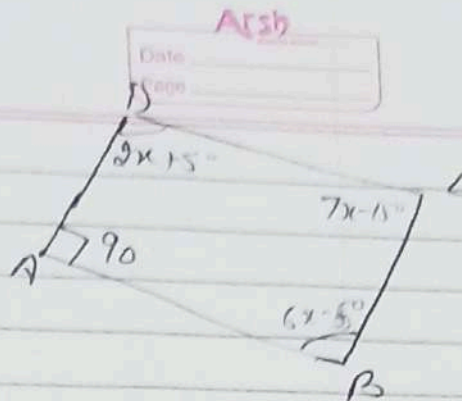 Arsh
Date
Page
2x+5°
7x-15°
A
90
B